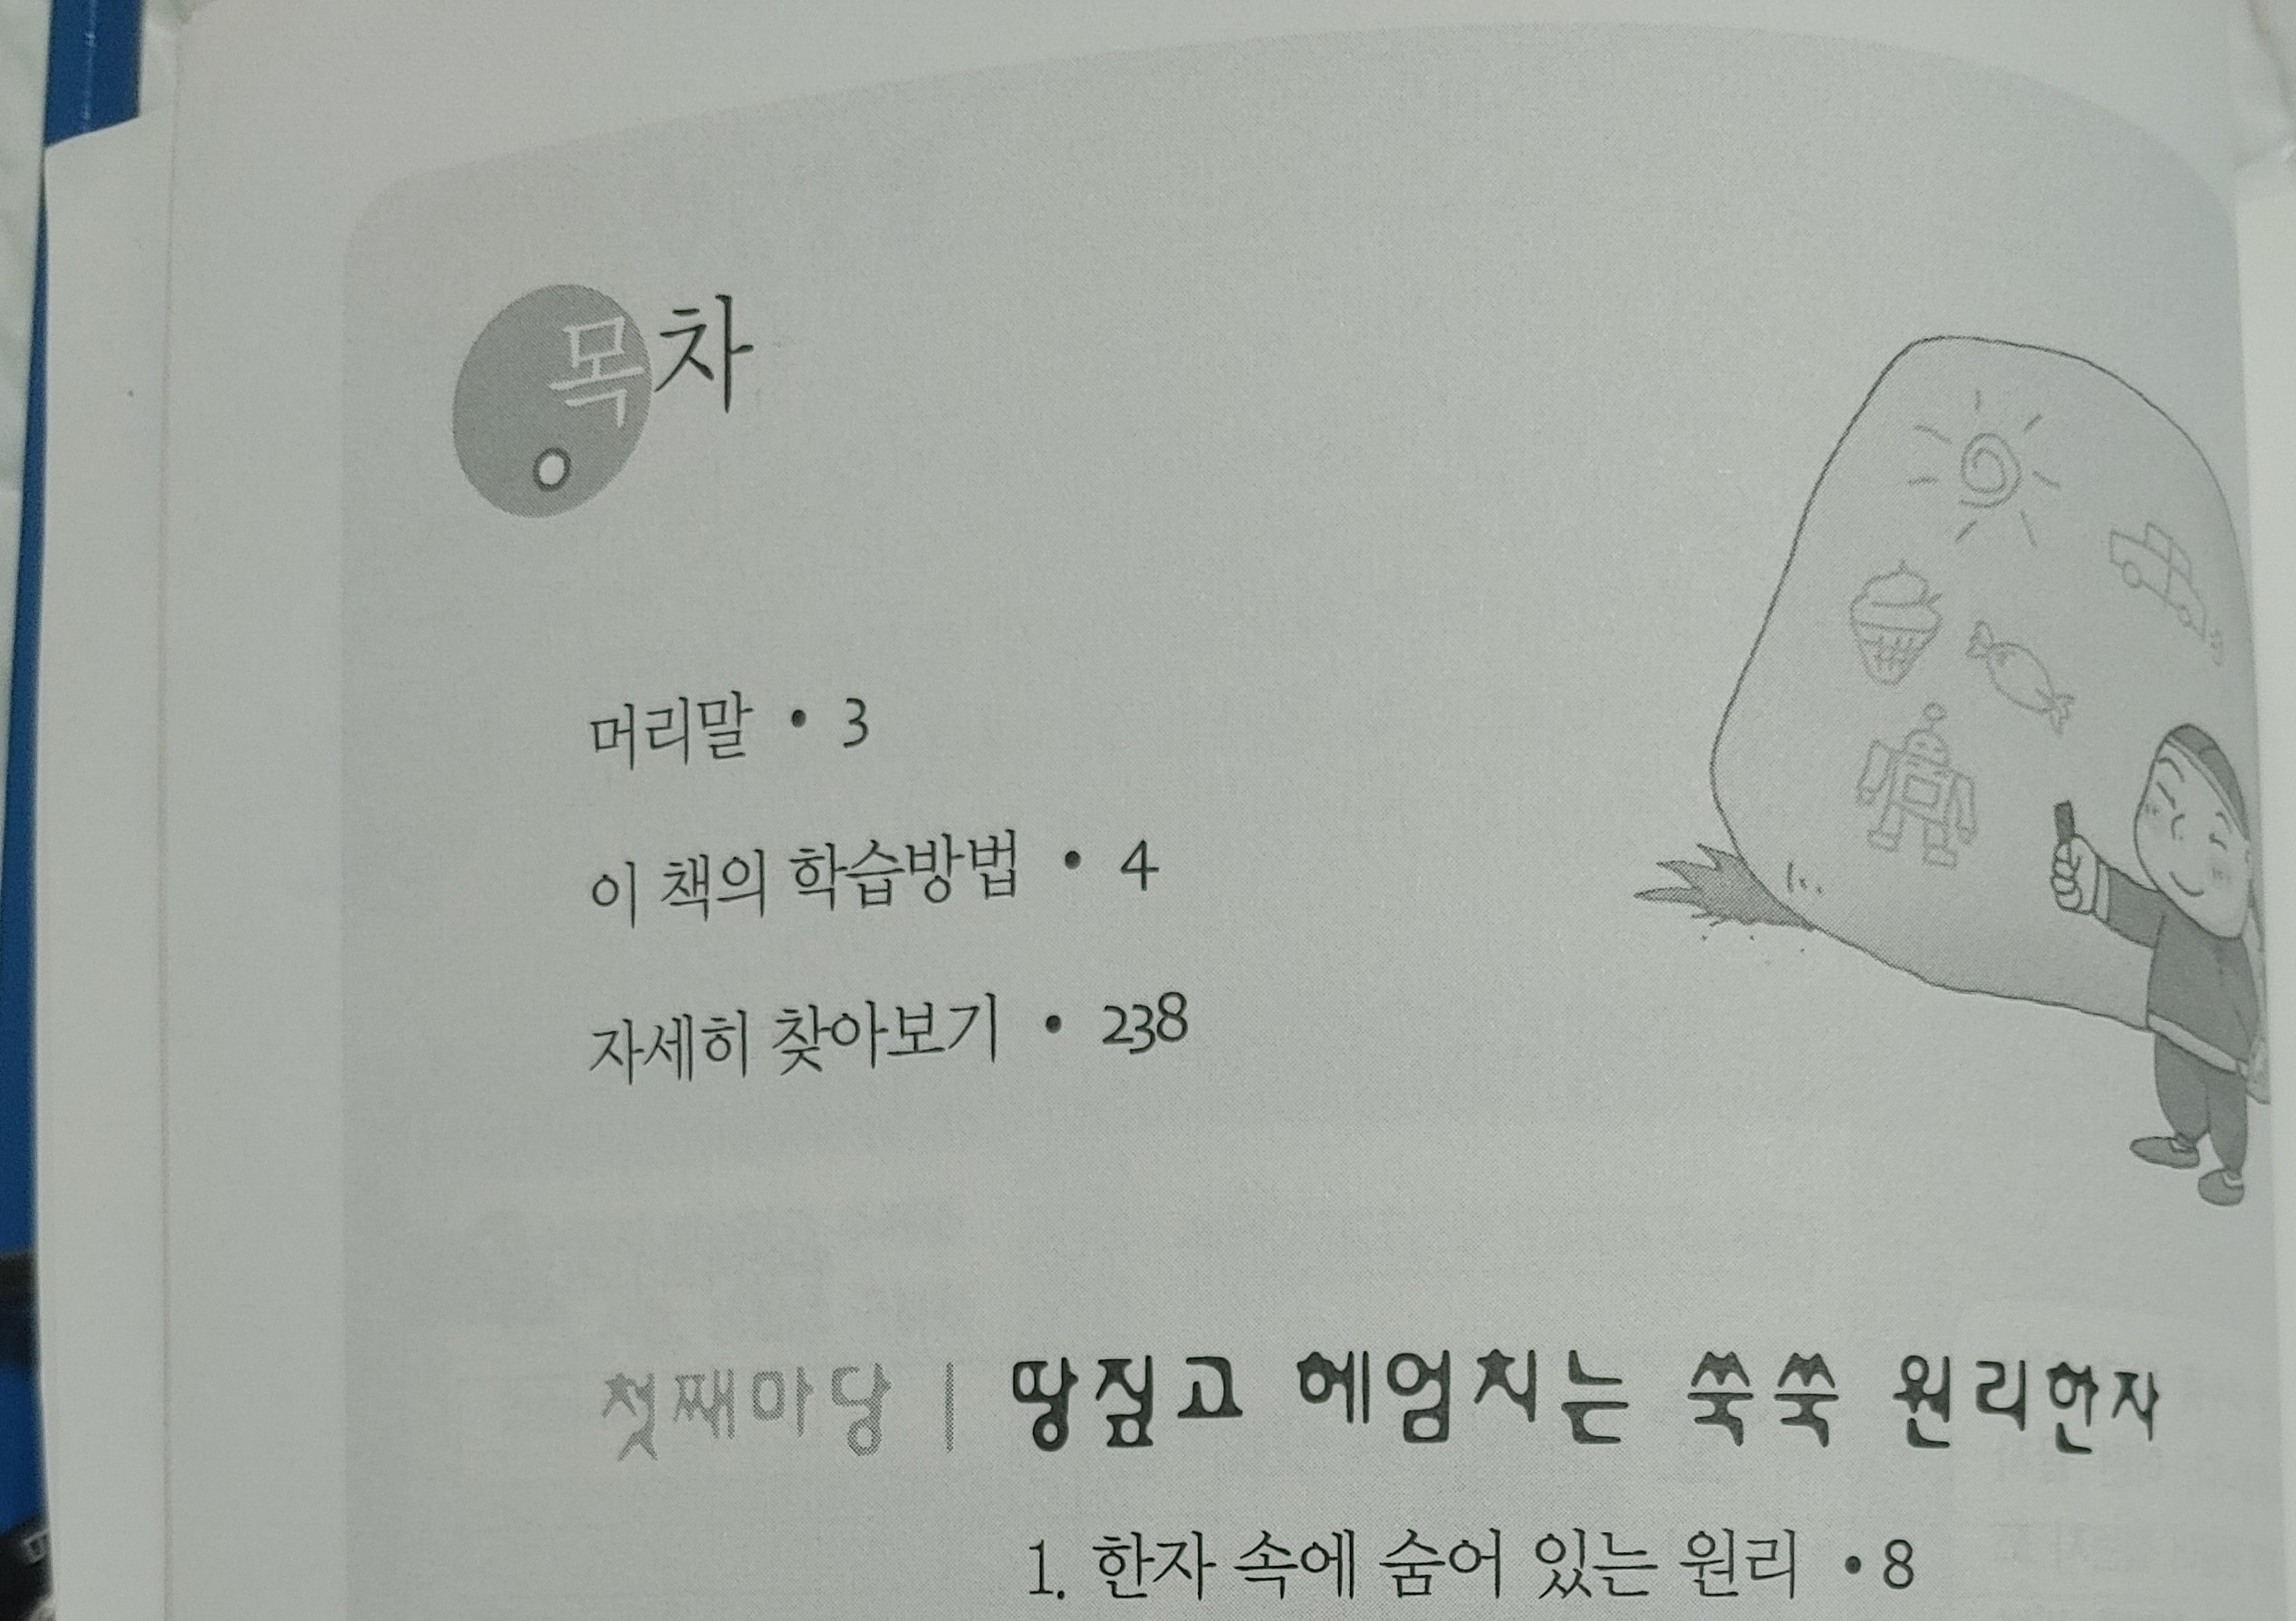 목차
머리말 • 3
이 책의 학습방법 • 4
자세히 찾아보기 • 238
첫째마당 | 땅짚고 헤엄치는 쑥쑥 원리한자
1. 한자 속에 숨어 있는 원리 • 8